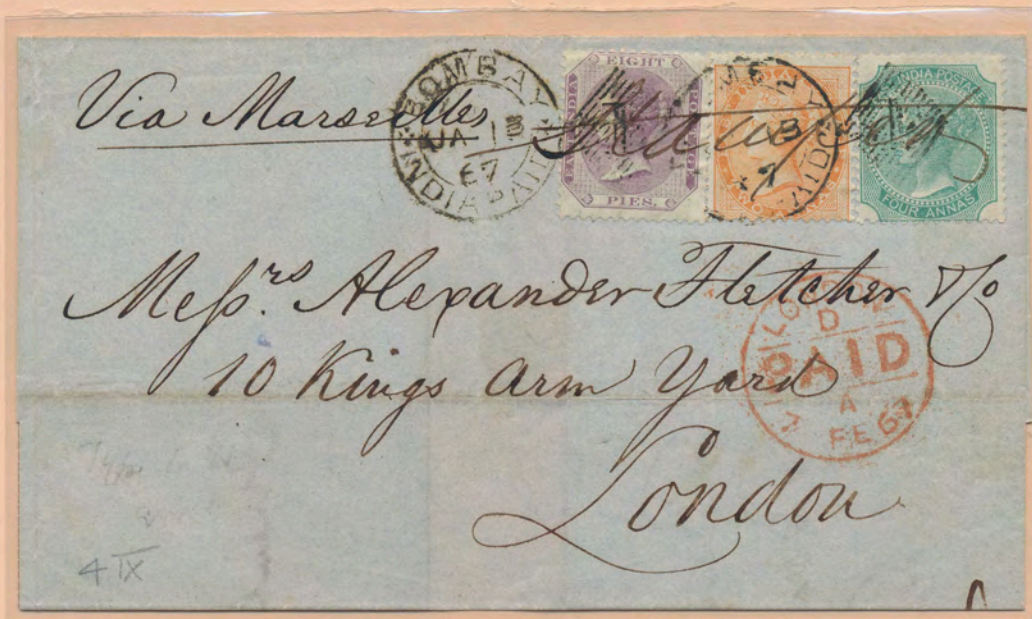 Via Marseilles
BOMBAY
JA 13
67
INDIA PAID
EIGHT
EAST INDIA
POSTAGE
PIES.
INDIA POSTAGE
FOUR ANNAS
Messrs Alexander Fletcher & Co
10 Kings Arm Yard
London
LONDON
D
PAID
A
FE 67
4 IX